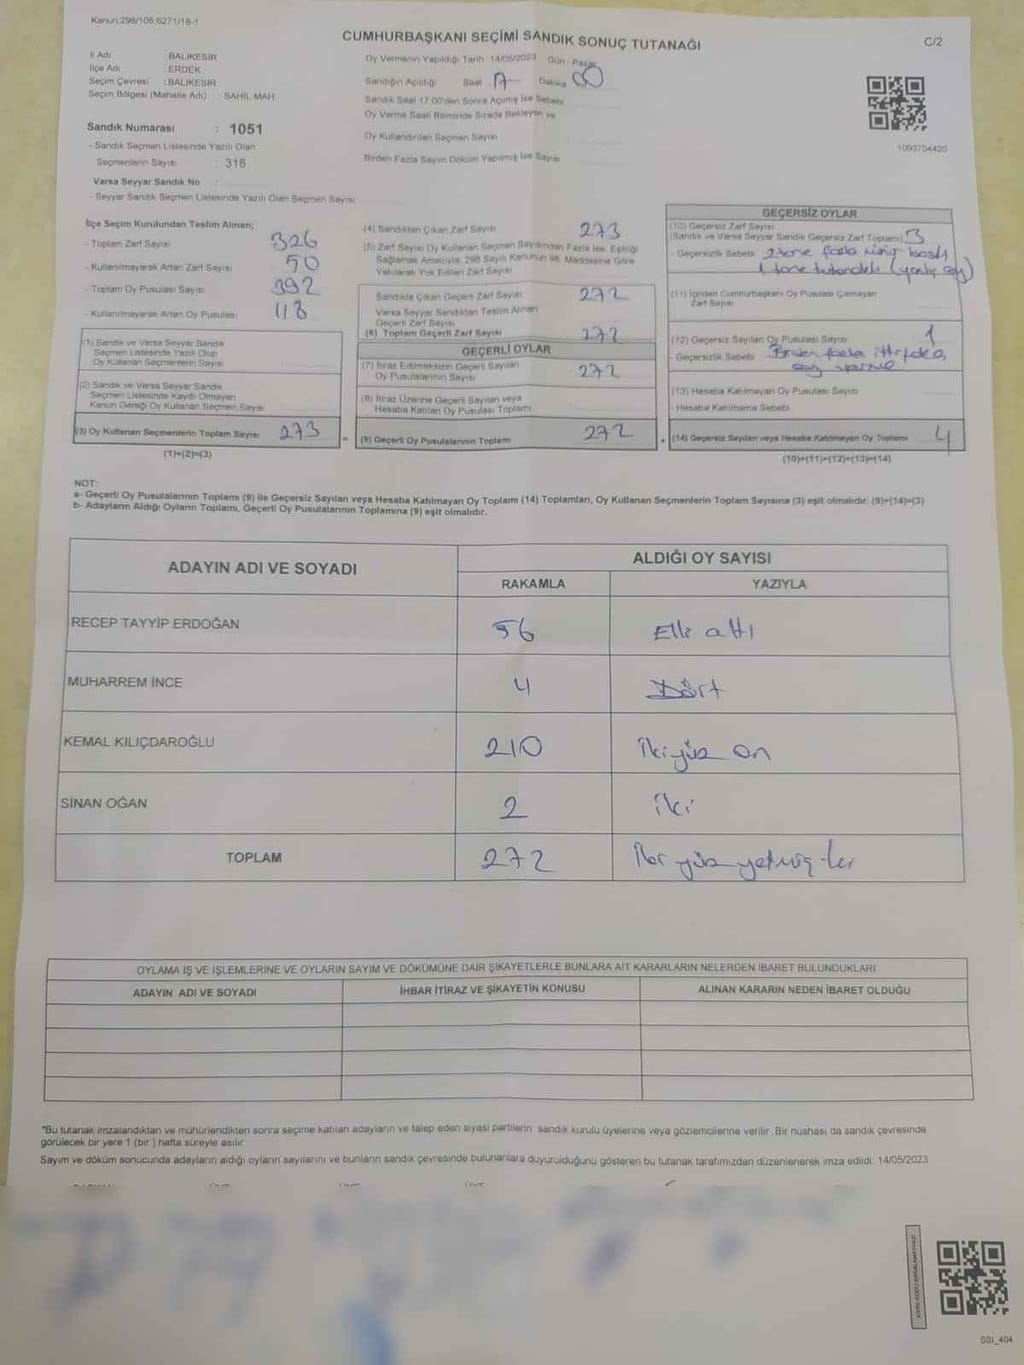 Kanun:298/105;6271/18-1
CUMHURBAŞKANI SEÇİMİ SANDIK SONUÇ TUTANAĞI
C/2
İl Adı : BALIKESİR
İlçe Adı : ERDEK
Seçim Çevresi : BALIKESİR
Seçim Bölgesi (Mahalle Adı) : SAHİL MAH.
Sandık Numarası : 1051
- Sandık Seçmen Listesinde Yazılı Olan
Seçmenlerin Sayısı : 316
Varsa Seyyar Sandık No :
- Seyyar Sandık Seçmen Listesinde Yazılı Olan Seçmen Sayısı
Oy Vermenin Yapıldığı Tarih 14/05/2023 Gün: Pazar
Sandığın Açıldığı Saat Dakika 00
Sandık Saat 17:00'den Sonra Açılmış İse Sebebi
Oy Verme Saati Bitiminde Sırada Bekleyen ve
Oy Kullandırılan Seçmen Sayısı
Birden Fazla Sayım Döküm Yapılmış İse Sayısı
1093704420
İlçe Seçim Kurulundan Teslim Alınan;
- Toplam Zarf Sayısı 326
- Kullanılmayarak Artan Zarf Sayısı 50
- Toplam Oy Pusulası Sayısı 392
- Kullanılmayarak Artan Oy Pusulası 118
(1) Sandık ve Varsa Seyyar Sandık
Seçmen Listesinde Yazılı Olup
Oy Kullanan Seçmenlerin Sayısı
(2) Sandık ve Varsa Seyyar Sandık
Seçmen Listesinde Kayıtlı Olmayan
Kanun Gereği Oy Kullanan Seçmen Sayısı
(3) Oy Kullanan Seçmenlerin Toplam Sayısı 273
(1)+(2)=(3)
(4) Sandıktan Çıkan Zarf Sayısı 273
(5) Zarf Sayısı Oy Kullanan Seçmen Sayısından Fazla İse, Eşitliği
Sağlamak Amacıyla, 298 Sayılı Kanunun 98. Maddesine Göre
Yakılarak Yok Edilen Zarf Sayısı
Sandıkta Çıkan Geçerli Zarf Sayısı 272
Varsa Seyyar Sandıktan Teslim Alınan
Geçerli Zarf Sayısı
(6) Toplam Geçerli Zarf Sayısı 272
GEÇERLİ OYLAR
(7) İtiraz Edilmeksizin Geçerli Sayılan
Oy Pusulalarının Sayısı 272
(8) İtiraz Üzerine Geçerli Sayılan veya
Hesaba Katılan Oy Pusulası Toplamı
(9) Geçerli Oy Pusulalarının Toplamı 272
GEÇERSİZ OYLAR
(10) Geçersiz Zarf Sayısı
(Sandık ve Varsa Seyyar Sandık Geçersiz Zarf Toplamı) 3
- Geçersizlik Sebebi 2 tane fazla mühür basılı
1 tane tutanaklı (yanlış oy)
(11) İçinden Cumhurbaşkanı Oy Pusulası Çıkmayan
Zarf Sayısı
(12) Geçersiz Sayılan Oy Pusulası Sayısı 1
- Geçersizlik Sebebi Birden fazla ittifaka
oy verme
(13) Hesaba Katılmayan Oy Pusulası Sayısı
- Hesaba Katılmama Sebebi
(14) Geçersiz Sayılan veya Hesaba Katılmayan Oy Toplamı 4
(10)+(11)+(12)+(13)=(14)
NOT:
a- Geçerli Oy Pusulalarının Toplamı (9) ile Geçersiz Sayılan veya Hesaba Katılmayan Oy Toplamı (14) Toplamları, Oy Kullanan Seçmenlerin Toplam Sayısına (3) eşit olmalıdır. (9)+(14)=(3)
b- Adayların Aldığı Oyların Toplamı, Geçerli Oy Pusulalarının Toplamına (9) eşit olmalıdır.
ADAYIN ADI VE SOYADI
ALDIĞI OY SAYISI
RAKAMLA YAZIYLA
RECEP TAYYİP ERDOĞAN 56 Elli altı
MUHARREM İNCE 4 Dört
KEMAL KILIÇDAROĞLU 210 İkiyüz on
SİNAN OĞAN 2 iki
TOPLAM 272 iki yüz yetmiş iki
OYLAMA İŞ VE İŞLEMLERİNE VE OYLARIN SAYIM VE DÖKÜMÜNE DAİR ŞİKAYETLERLE BUNLARA AİT KARARLARIN NELERDEN İBARET BULUNDUKLARI
ADAYIN ADI VE SOYADI İHBAR İTİRAZ VE ŞİKAYETİN KONUSU ALINAN KARARIN NEDEN İBARET OLDUĞU
*Bu tutanak imzalandıktan ve mühürlendikten sonra seçime katılan adayların ve talep eden siyasi partilerin sandık kurulu üyelerine veya gözlemcilerine verilir. Bir nüshası da sandık çevresinde
görülecek bir yere 1 (bir ) hafta süreyle asılır.
Sayım ve döküm sonucunda adayların aldığı oyların sayılarını ve bunların sandık çevresinde bulunanlara duyurulduğunu gösteren bu tutanak tarafımızdan düzenlenerek imza edildi. 14/05/2023
SSI_404